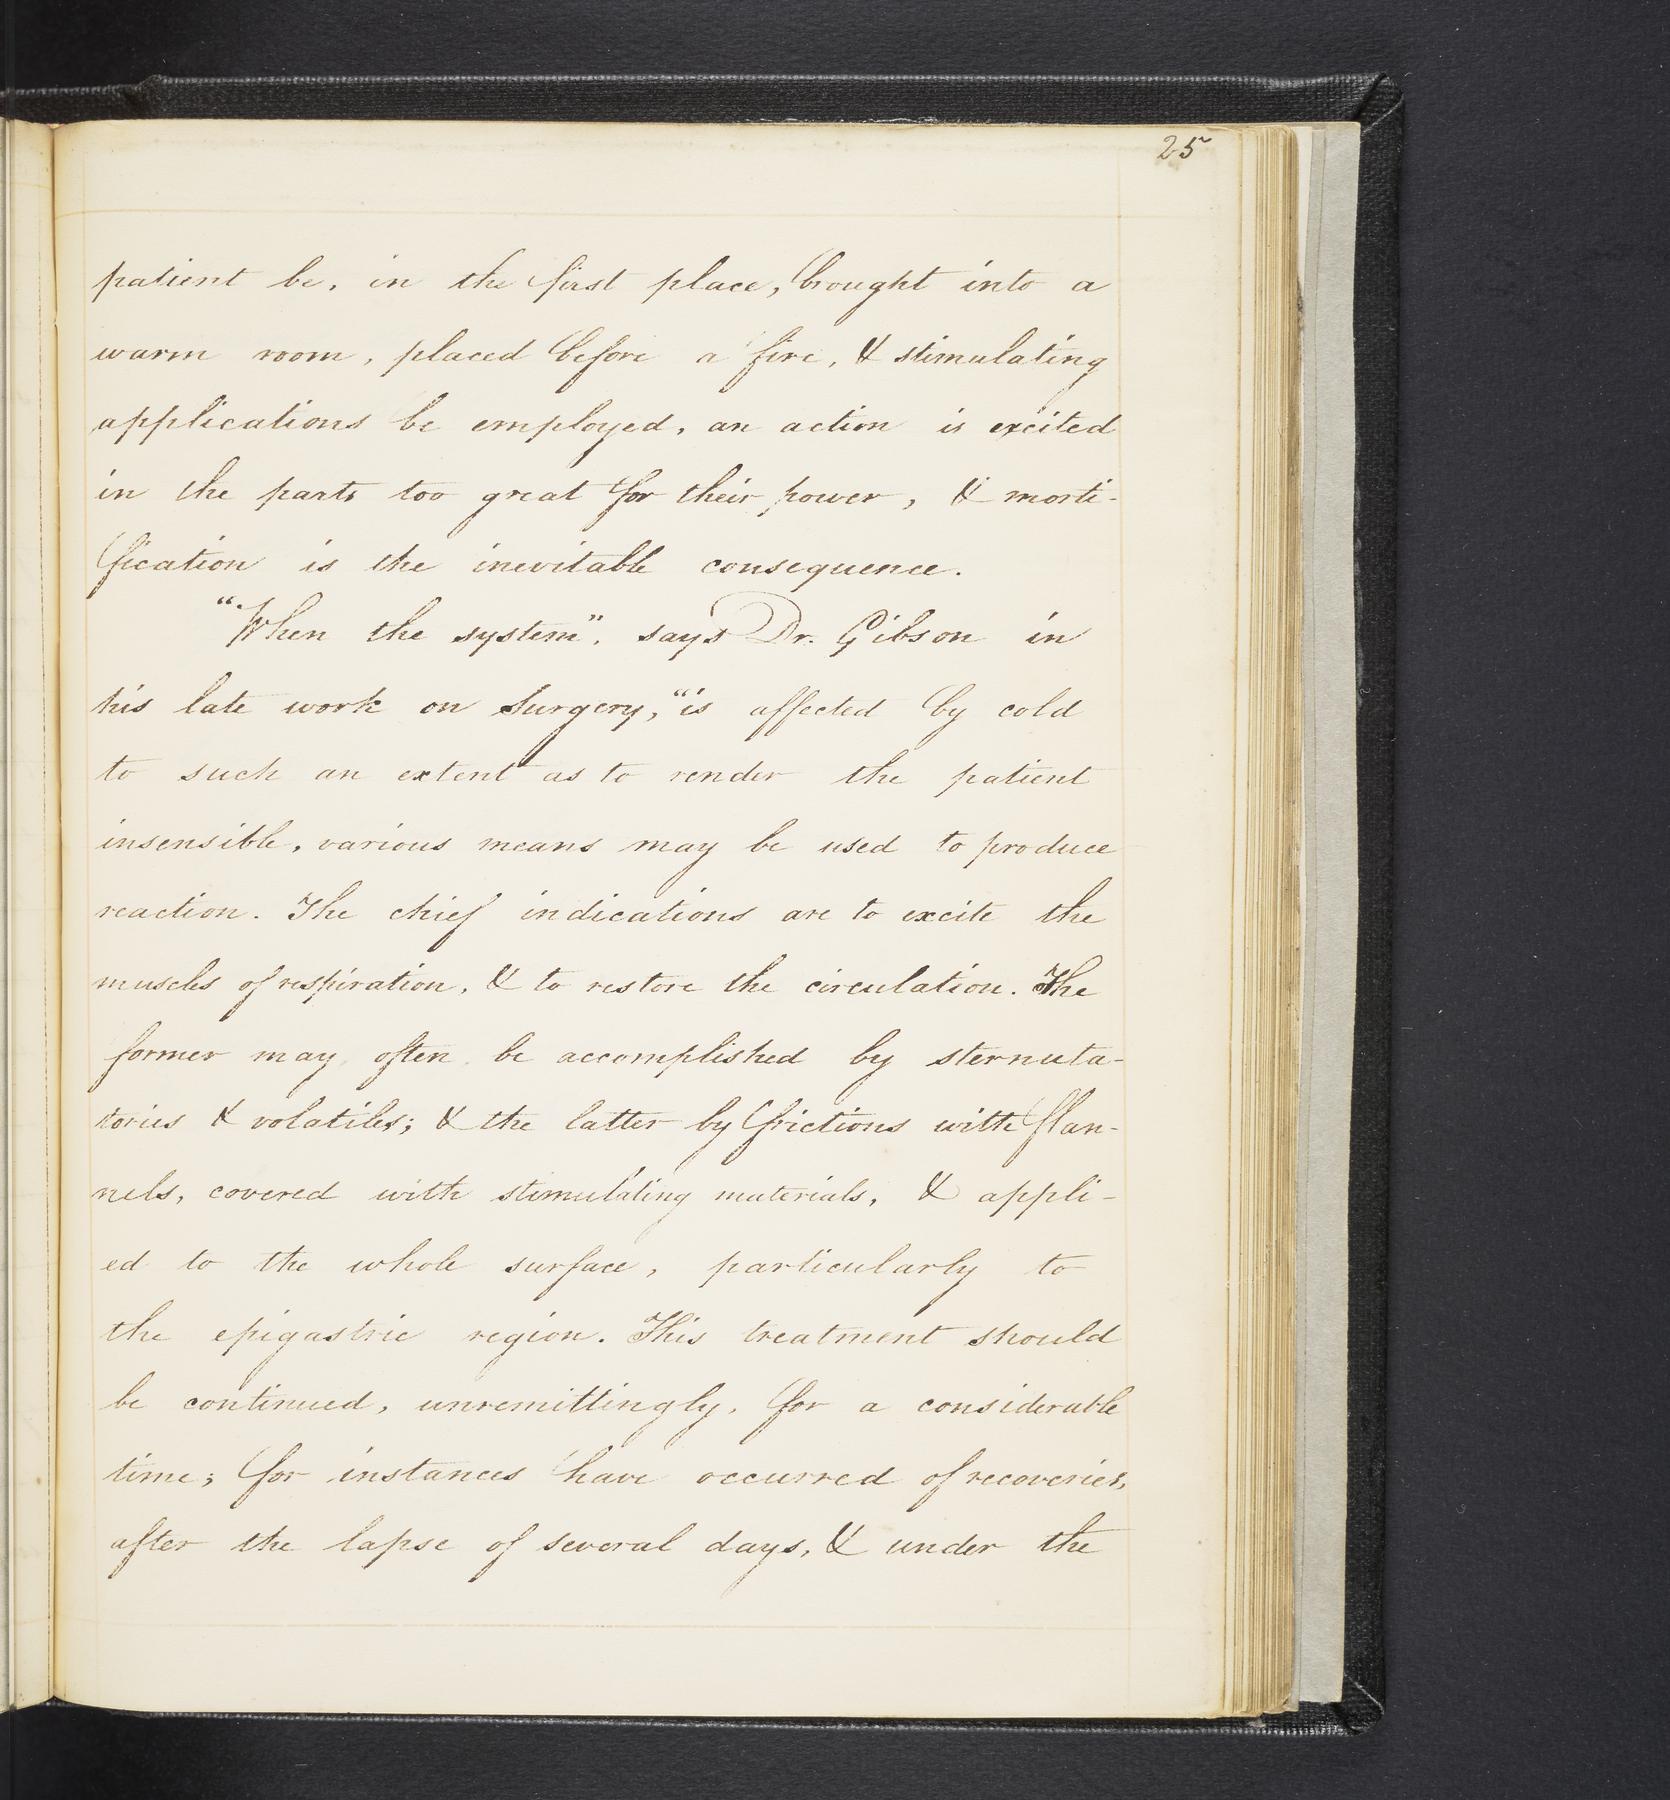 25
patient be, in the first place, brought into a
warm room, placed before a fire, & stimulating
applications be employed, an action is excited
in the parts too great for their power, & morti-
fication is the inevitable consequence.
"When the system", says Dr. Gibson in
his late work on Surgery, "is affected by cold
to such an extent as to render the patient
insensible, various means may be used to produce
reaction. The chief indications are to excite the
muscles of respiration, & to restore the circulation. The
former may often be accomplished by sternuta-
tories & volatiles; & the latter by frictions with flan-
nels, covered with stimulating materials, & appli-
ed to the whole surface, particularly to
the epigastric region. This treatment should
be continued, unremittingly, for a considerable
time; for instances have occurred of recoveries,
after the lapse of several days, & under the